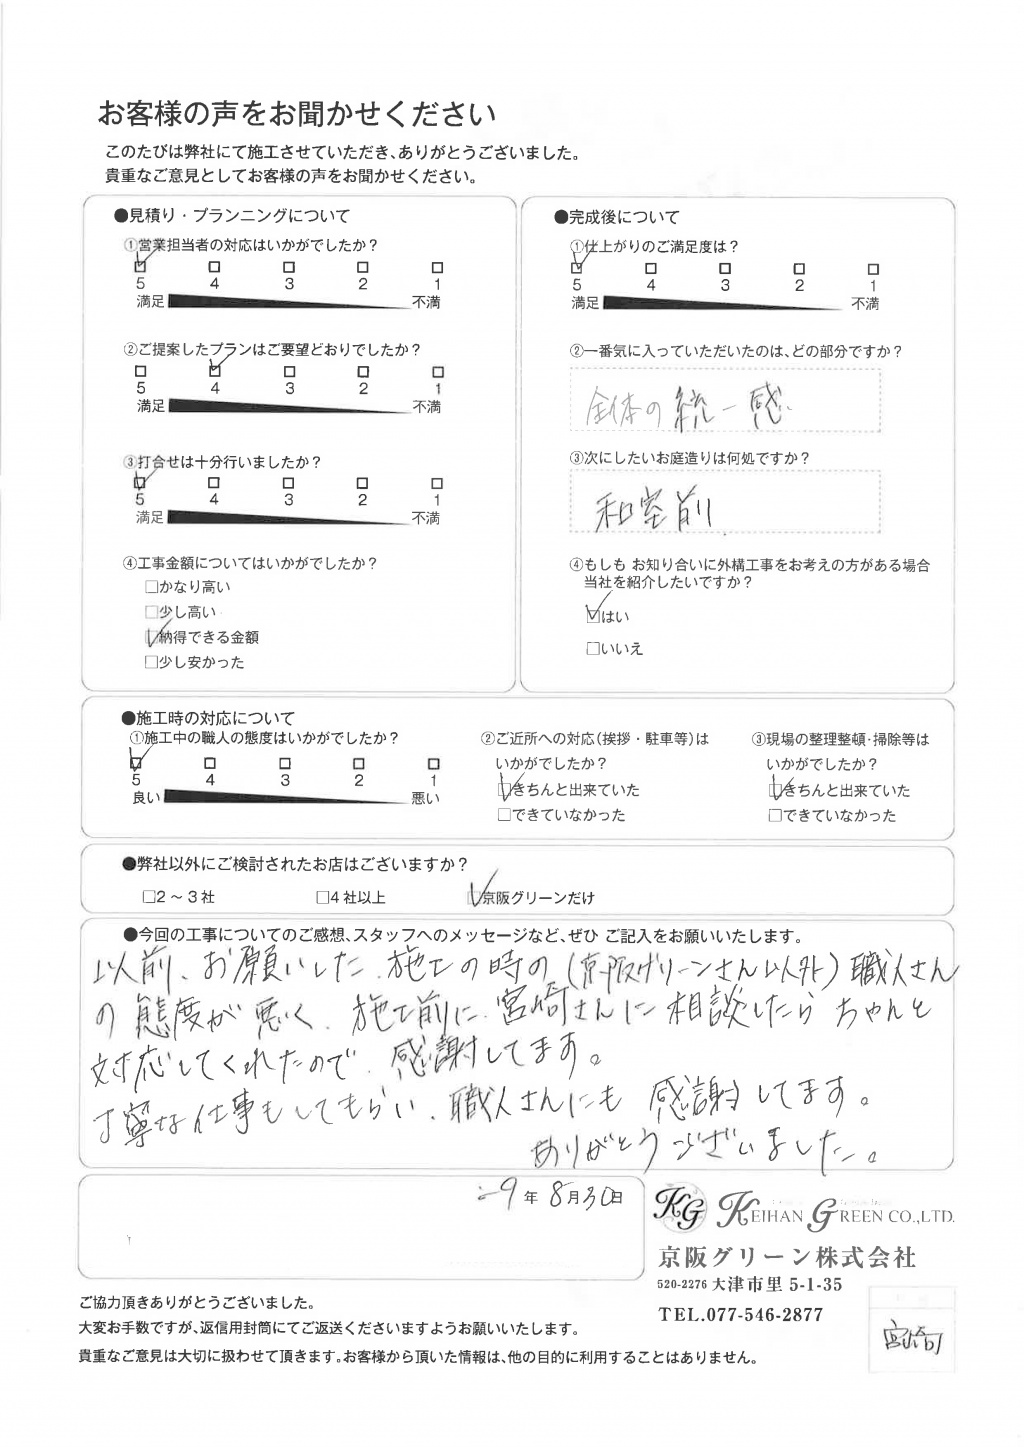 お客様の声をお聞かせください
このたびは弊社にて施工させていただき、ありがとうございました。
貴重なご意見としてお客様の声をお聞かせください。
●見積り・プランニングについて
①営業担当者の対応はいかがでしたか?
5 4 3 2 1
満足 不満
②ご提案したプランはご要望どおりでしたか?
5 4 3 2 1
満足 不満
③打合せは十分行いましたか?
5 4 3 2 1
満足 不満
④工事金額についてはいかがでしたか?
□かなり高い
□少し高い
☑納得できる金額
□少し安かった
●完成後について
①仕上がりのご満足度は?
5 4 3 2 1
満足 不満
②一番気に入っていただいたのは、どの部分ですか?
全体の統一感.
③次にしたいお庭造りは何処ですか?
和室前
④もしも お知り合いに外構工事をお考えの方がある場合
当社を紹介したいですか?
☑はい
□いいえ
●施工時の対応について
①施工中の職人の態度はいかがでしたか?
5 4 3 2 1
良い 悪い
②ご近所への対応(挨拶・駐車等)は
いかがでしたか?
☑きちんと出来ていた
□できていなかった
③現場の整理整頓・掃除等は
いかがでしたか?
☑きちんと出来ていた
□できていなかった
●弊社以外にご検討されたお店はございますか?
□2～3社 □4社以上 ☑京阪グリーンだけ
●今回の工事についてのご感想、スタッフへのメッセージなど、ぜひ ご記入をお願いいたします。
以前、お願いした、施工の時の(京阪グリーンさん以外)職人さん
の態度が悪く、施工前に、宮崎さんに相談したらちゃんと
対応してくれたので、感謝してます。
丁寧な仕事もしてもらい、職人さんにも感謝してます。
ありがとうございました。
29年8月30日
KG KEIHAN GREEN CO.,LTD.
京阪グリーン株式会社
520-2276 大津市里 5-1-35
TEL.077-546-2877
ご協力頂きありがとうございました。
大変お手数ですが、返信用封筒にてご返送くださいますようお願いいたします。
貴重なご意見は大切に扱わせて頂きます。お客様から頂いた情報は、他の目的に利用することはありません。
宮崎